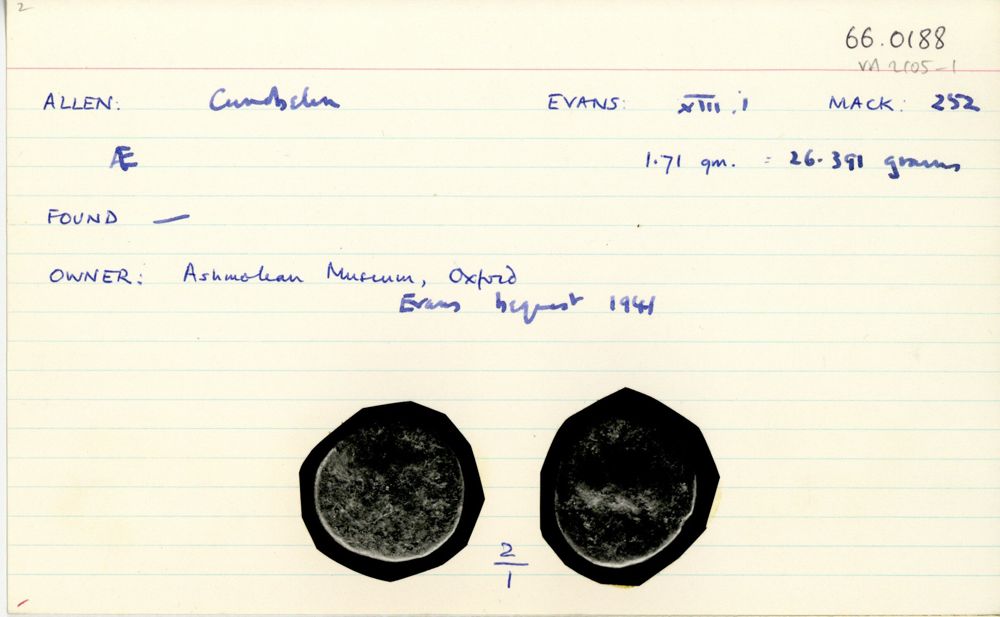 2
66.0188
VA 2105-1
ALLEN: Cunobelin EVANS: XIII.1 MACK: 252
Æ 1.71 gm. = 26.391 grains
FOUND —
OWNER: Ashmolean Museum, Oxford
Evans bequest 1941
2
1